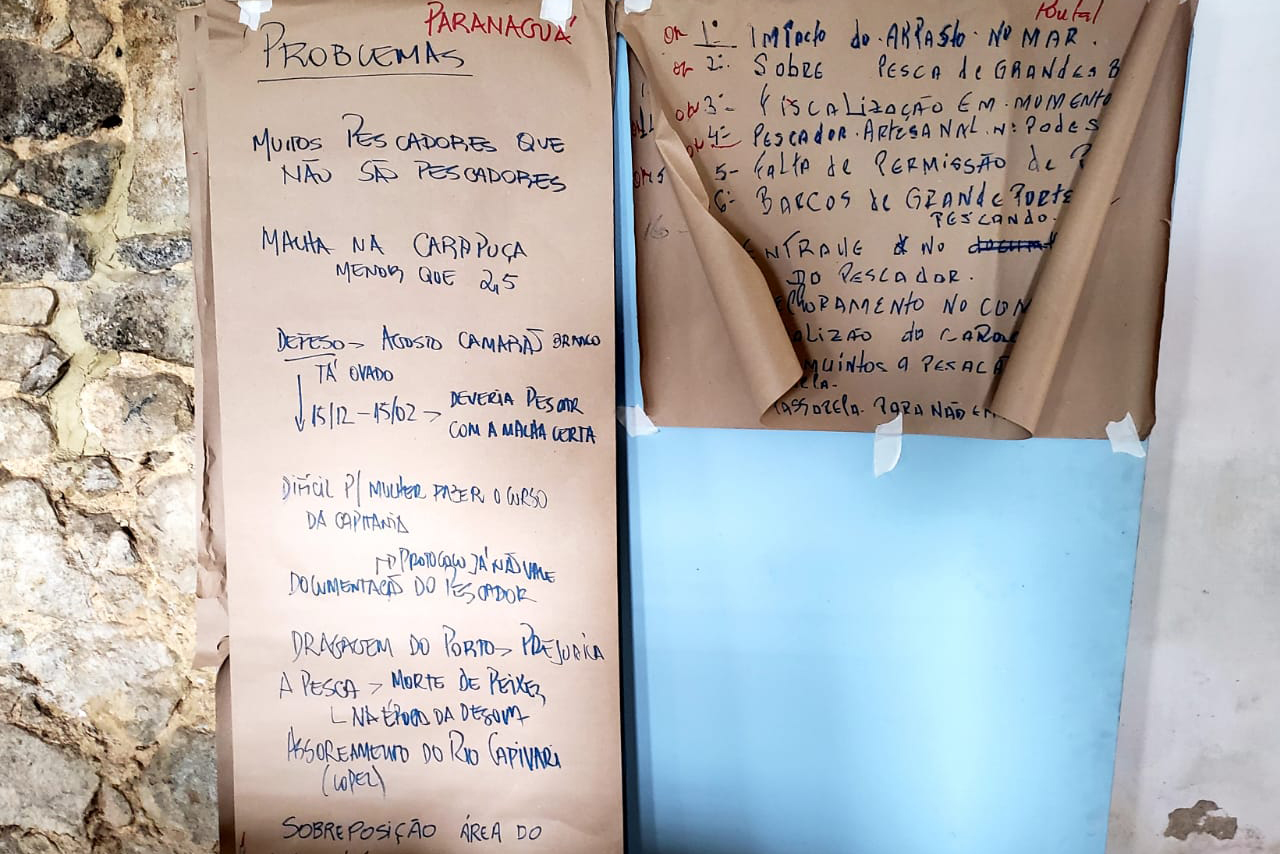 PARANAGUÁ
PROBLEMAS
MUITOS PESCADORES QUE
NÃO SÃO PESCADORES
MALHA NA CARAPUÇA
MENOR QUE 2,5
DEFESO -> AGOSTO CAMARÃO BRANCO
TÁ OVADO
15/12 - 15/02 -> DEVERIA PESCAR
COM A MALHA CERTA
DIFÍCIL P/ MULHER FAZER O CURSO
DA CAPITANIA
PROTOCOLO JÁ NÃO VALE
DOCUMENTAÇÃO DO PESCADOR
DRAGAGEM DO PORTO -> PREJUDICA
A PESCA > MORTE DE PEIXES
NA ÉPOCA DA DESOVA
ASSOREAMENTO DO RIO CAPIVARI
SOBREPOSIÇÃO ÁREA DO
1º IMPACTO do ARRASTO NO MAR.
2º SOBRE PESCA de GRANDES B
3º- FISCALIZAÇÃO EM MUMENTO
4º- PESCADOR ARTESANAL N: PODE S
5- FALTA de PERMISSÃO de P
6º BARCOS de GRANDE PORTE
PESCANDO.
ENTRAVE NO
DO PESCADOR.
NO CON
do
A PESACA
PARA NÃO